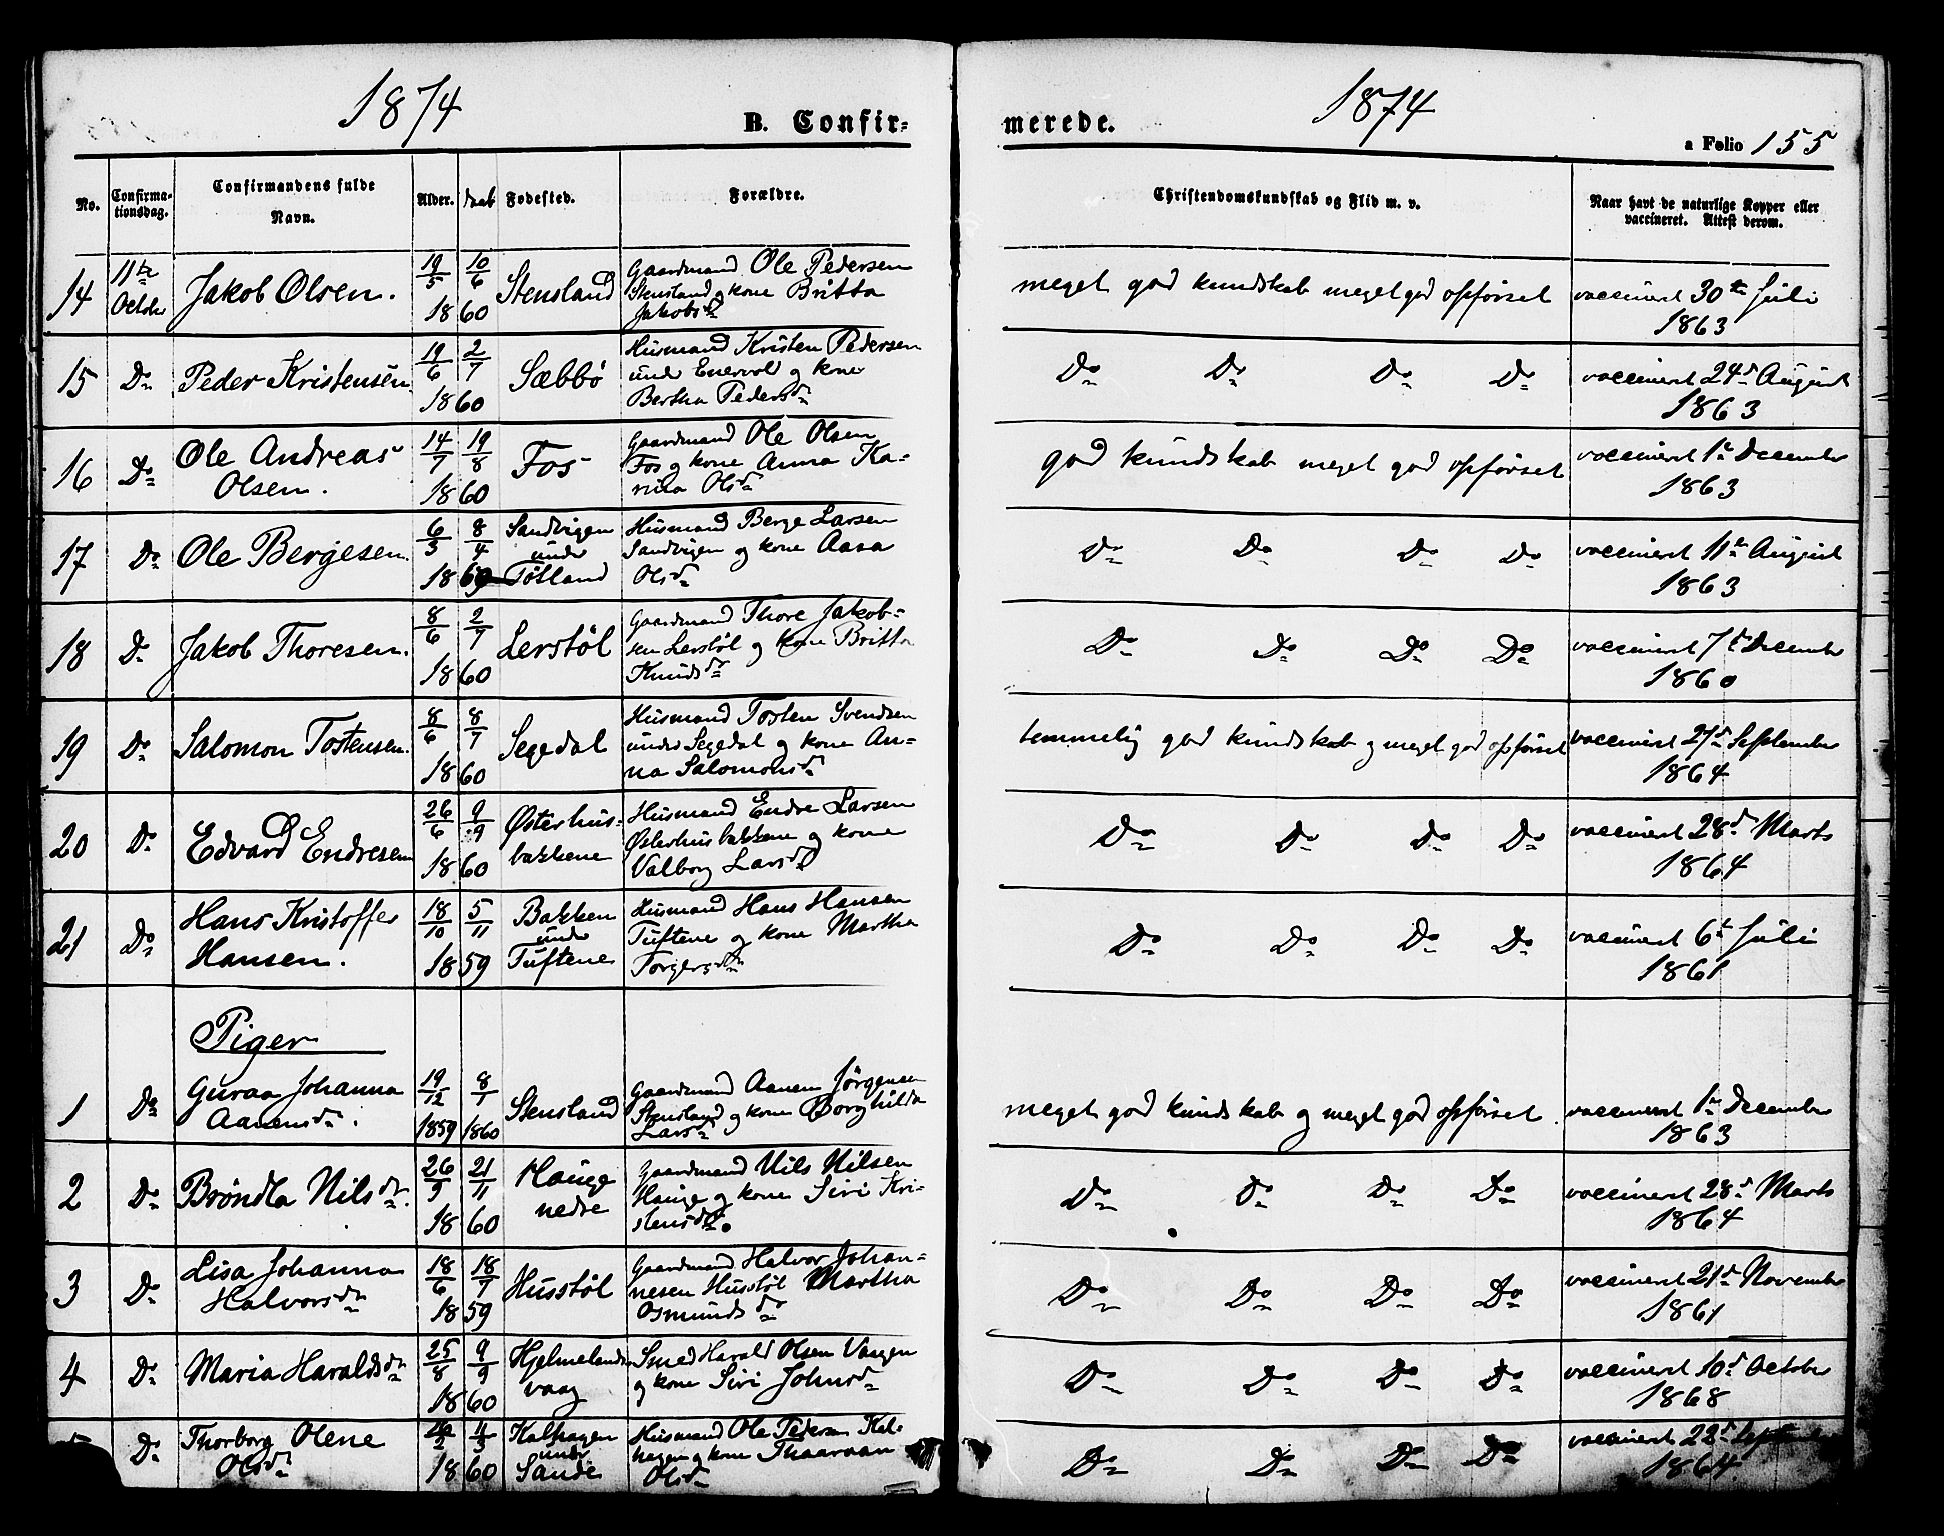 1874
B. Confir-
merede.
1874
a Folio 155
No.
Confirma-
tionsdag.
Confirmandens fulde
Navn.
Alder.
Daab
Fødested.
Forældre.
Christendomskundskab og Flid m. v.
Naar havt de naturlige Kopper eller
vaccineret. Attest derom.
14
11te
Octobr
Jakob Olsen.
19/5 10/6
1860
Stensland
Gaardmand Ole Pedersen
Stensland og kone Britta
Jakobsdr
meget god kundskab meget god opførsel
vaccinert 30te Juli
1863
15
Do
Peder Kristensen
19/6 2/7
1860
Sæbbø
Husmand Kristen Pedersen
unde Enervold og kone
Bertha Pedersdr
Do Do Do Do
vaccinert 24d August
1863
16
Do
Ole Andreas
Olsen.
14/7 19/8
1860
Fos
Gaardmand Ole Olsen
Fos og kone Anna Ka-
rina Olsdr
god kundskab meget god opførsel
vaccinert 1te December
1863
17
Do
Ole Bergesen.
6/3 8/4
1860
Sandvigen
unde
Tøtland
Husmand Berge Larsen
Sandvigen og kone Aasa
Olsdr
Do Do Do Do
vaccinert 11te August
1863
18
Do
Jakob Thoresen.
8/6 2/7
1860
Lerstøl
Gaardmand Thore Jakob-
sen Lerstøl og kone Britta
Knudsdr
Do Do Do Do
vaccinert 7d December
1860
19
Do
Salomon Tostensen.
8/6 8/7
1860
Segedal
Husmand Tosten Svendsen
under Segedal og kone An-
na Salomonsdr
temmelig god kundskab og meget god opførsel
vaccinert 21d September
1864
20
Do
Edvard Endresen
26/6 9/9
1860
Østerhus-
bakkene
Husmand Endre Larsen
Østerhusbakkene og kone
Valborg Larsdr
Do Do Do Do
vaccinert 28d Marts
1864
21
Do
Hans Kristoffer
Hansen.
18/10 5/11
1859
Bakken
unde
Tuftene
Husmand Hans Hansen
Tuftene og kone Martha
Torgersdr
Do Do Do Do
vaccinert 6t Juli
1861
Piger
1
Do
Guraa Johanna
Aanensdr.
19/12 8/1
1859 1860
Stensland
Gaardmand Aanen Jørgensen
Stensland og kone Borghilda
Larsdr
meget god kundskab og meget god opførsel.
vaccinert 1te December
1863
2
Do
Brøndla Nilsdr.
26/9 21/11
1860
Hauge
nedre
Gaardmand Nils Nilsen
Hauge og kone Siri Kri-
stensdr.
Do Do Do Do
vaccinert 28d Marts
1864
3
Do
Lisa Johanna
Halvorsdr
18/6 18/7
1859
Husstøl
Gaardmand Halvor Johan-
nesen Husstøl Martha
Osmundsdr
Do Do Do Do
vaccinert 21d November
1861
4
Do
Maria Haraldsdr
25/8 9/9
1860
Hjelmelands
vaag
Smed Harald Olsen Vaagen
og kone Siri Johnsdr
Do Do Do Do
vaccinert 10d October
1868
Do
Thorborg Olene
Olsdr
4/3
1860
Kalhagen
under
Sande
Husmand Ole Pedersen Kal-
hagen og kone
Olsdr
Do Do Do Do
vaccinert 22d September
1864.